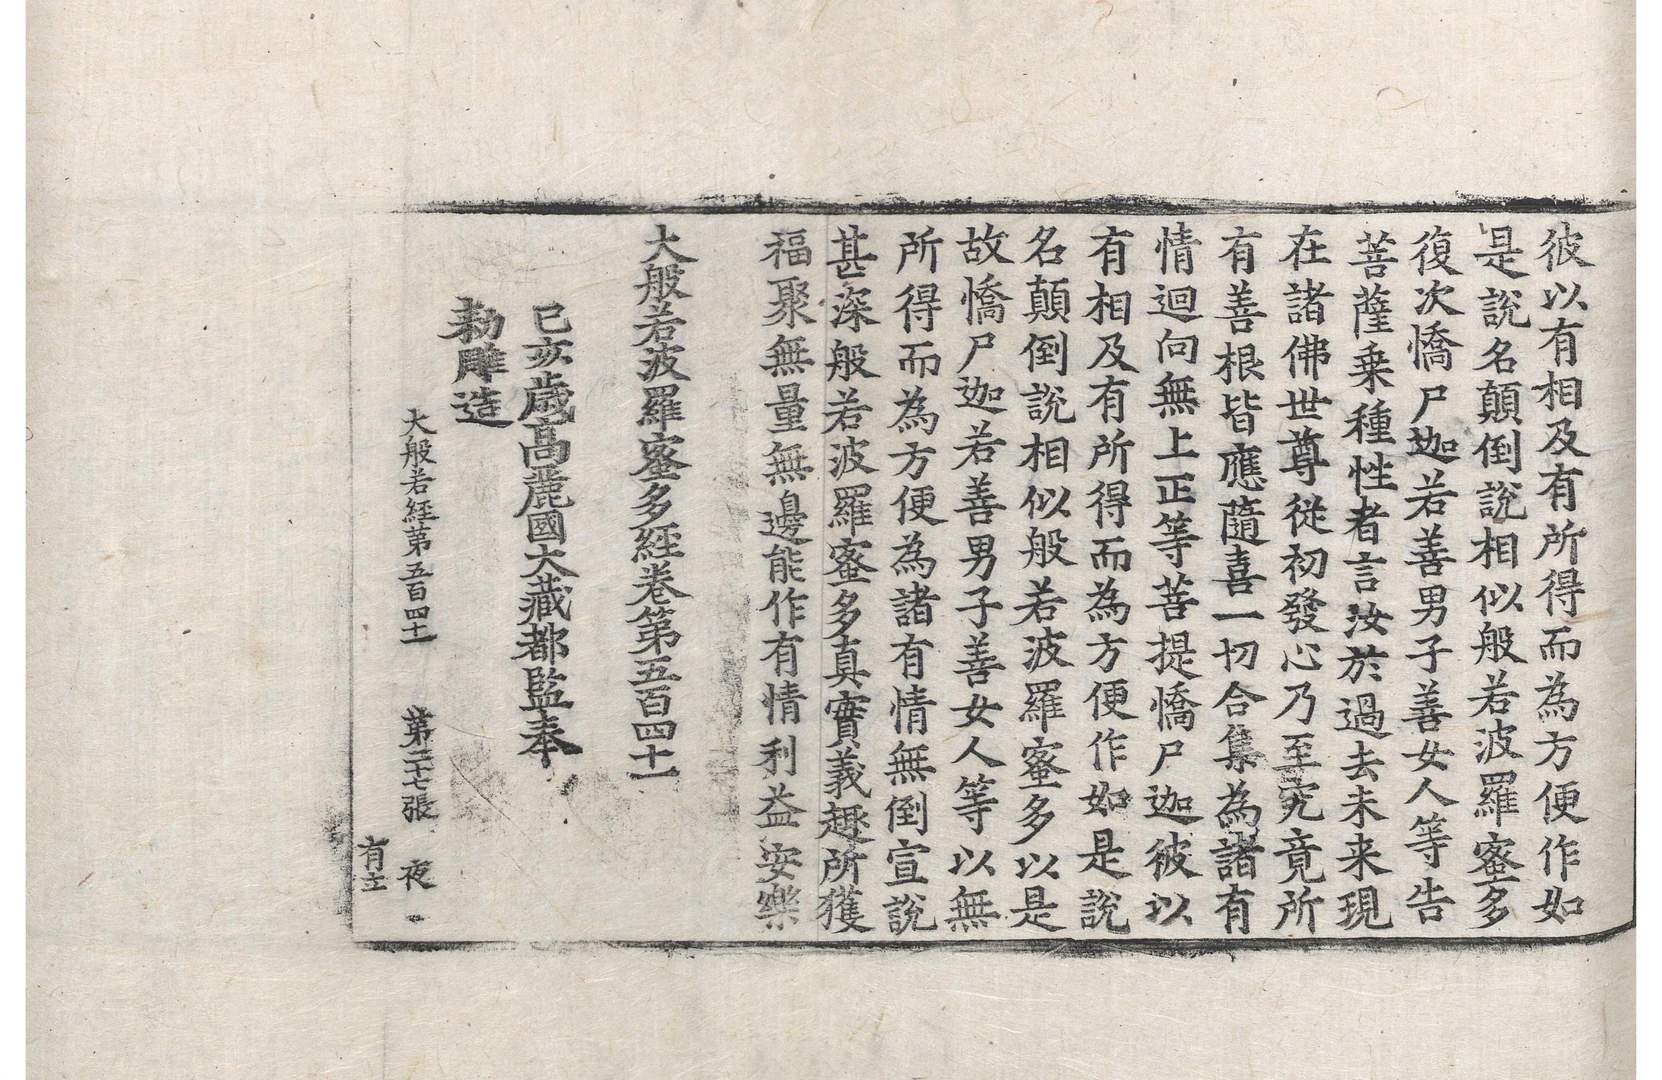 彼以有相及有所得而為方便作如
是說名顛倒說相似般若波羅蜜多
復次憍尸迦若善男子善女人等告
菩薩乗種性者言汝於過去未来現
在諸佛世尊從初發心乃至究竟所
有善根皆應隨喜一切合集為諸有
情迴向無上正等菩提憍尸迦彼以
有相及有所得而為方便作如是說
名顛倒說相似般若波羅蜜多以是
故憍尸迦若善男子善女人等以無
所得而為方便為諸有情無倒宣說
甚深般若波羅蜜多真實義趣所獲
福聚無量無邊能作有情利益安樂
大般若波羅蜜多經卷第五百四十一
己亥歲高麗國大藏都監奉
勅雕造
大般若経第五百四十一 第二十七張 夜
有立